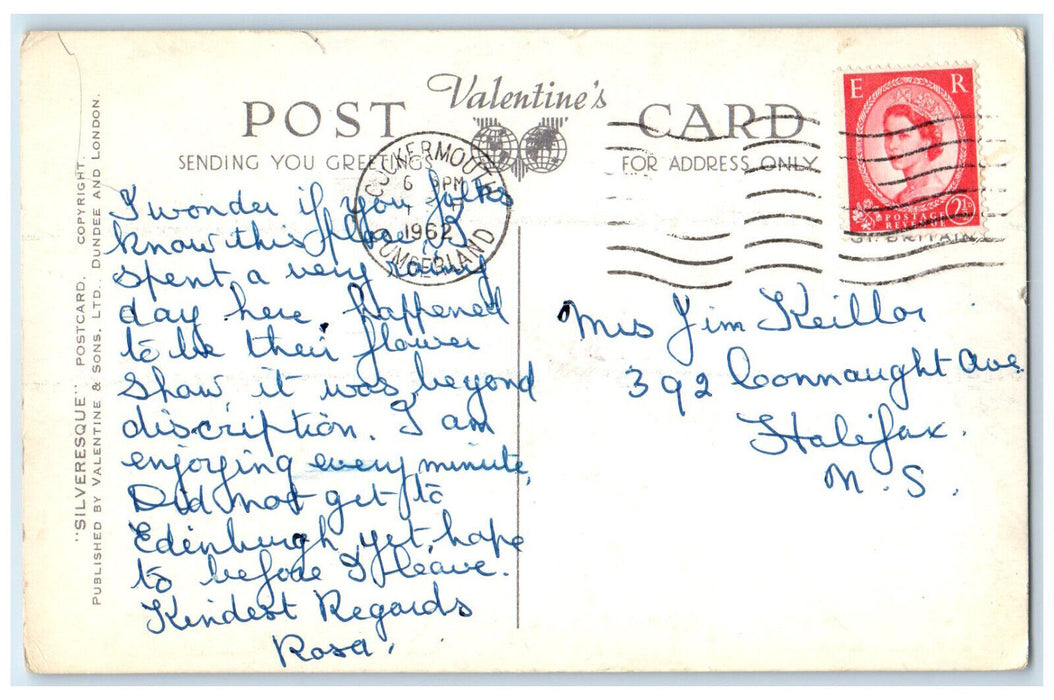 Valentine's
POST CARD
SENDING YOU GREETINGS
FOR ADDRESS ONLY
COCKERMOUTH
6 PM
1962
CUMBERLAND
E R
POSTAGE
REVENGE
2½D
GT. BRITAIN
"SILVERESQUE" POSTCARD. COPYRIGHT.
PUBLISHED BY VALENTINE & SONS, LTD., DUNDEE AND LONDON.
I wonder if you folks
know this place. I
spent a very
day here, happened
to be their flower
Show it was beyond
discription. I am
enjoying every minute,
Did not get to
Edinburgh yet, hope
to before I leave.
Kindest Regards
Rosa.
Mrs Jim Keillor
392 Connaught Ave.
Halifax.
N.S.